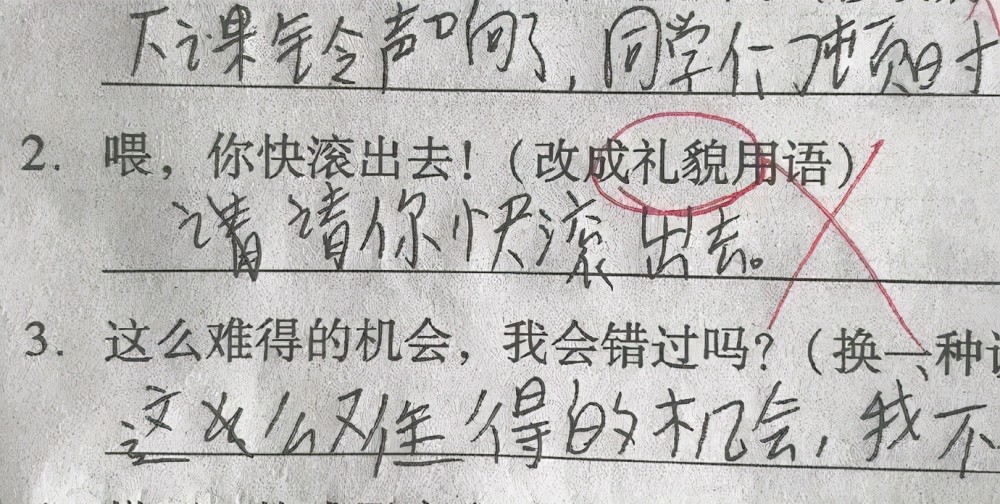 下课铃声响了，同学们顿时
2. 喂，你快滚出去！（改成礼貌用语）
请 请你快滚出去。
3. 这么难得的机会，我会错过吗？（换一种
这么难得的机会，我不